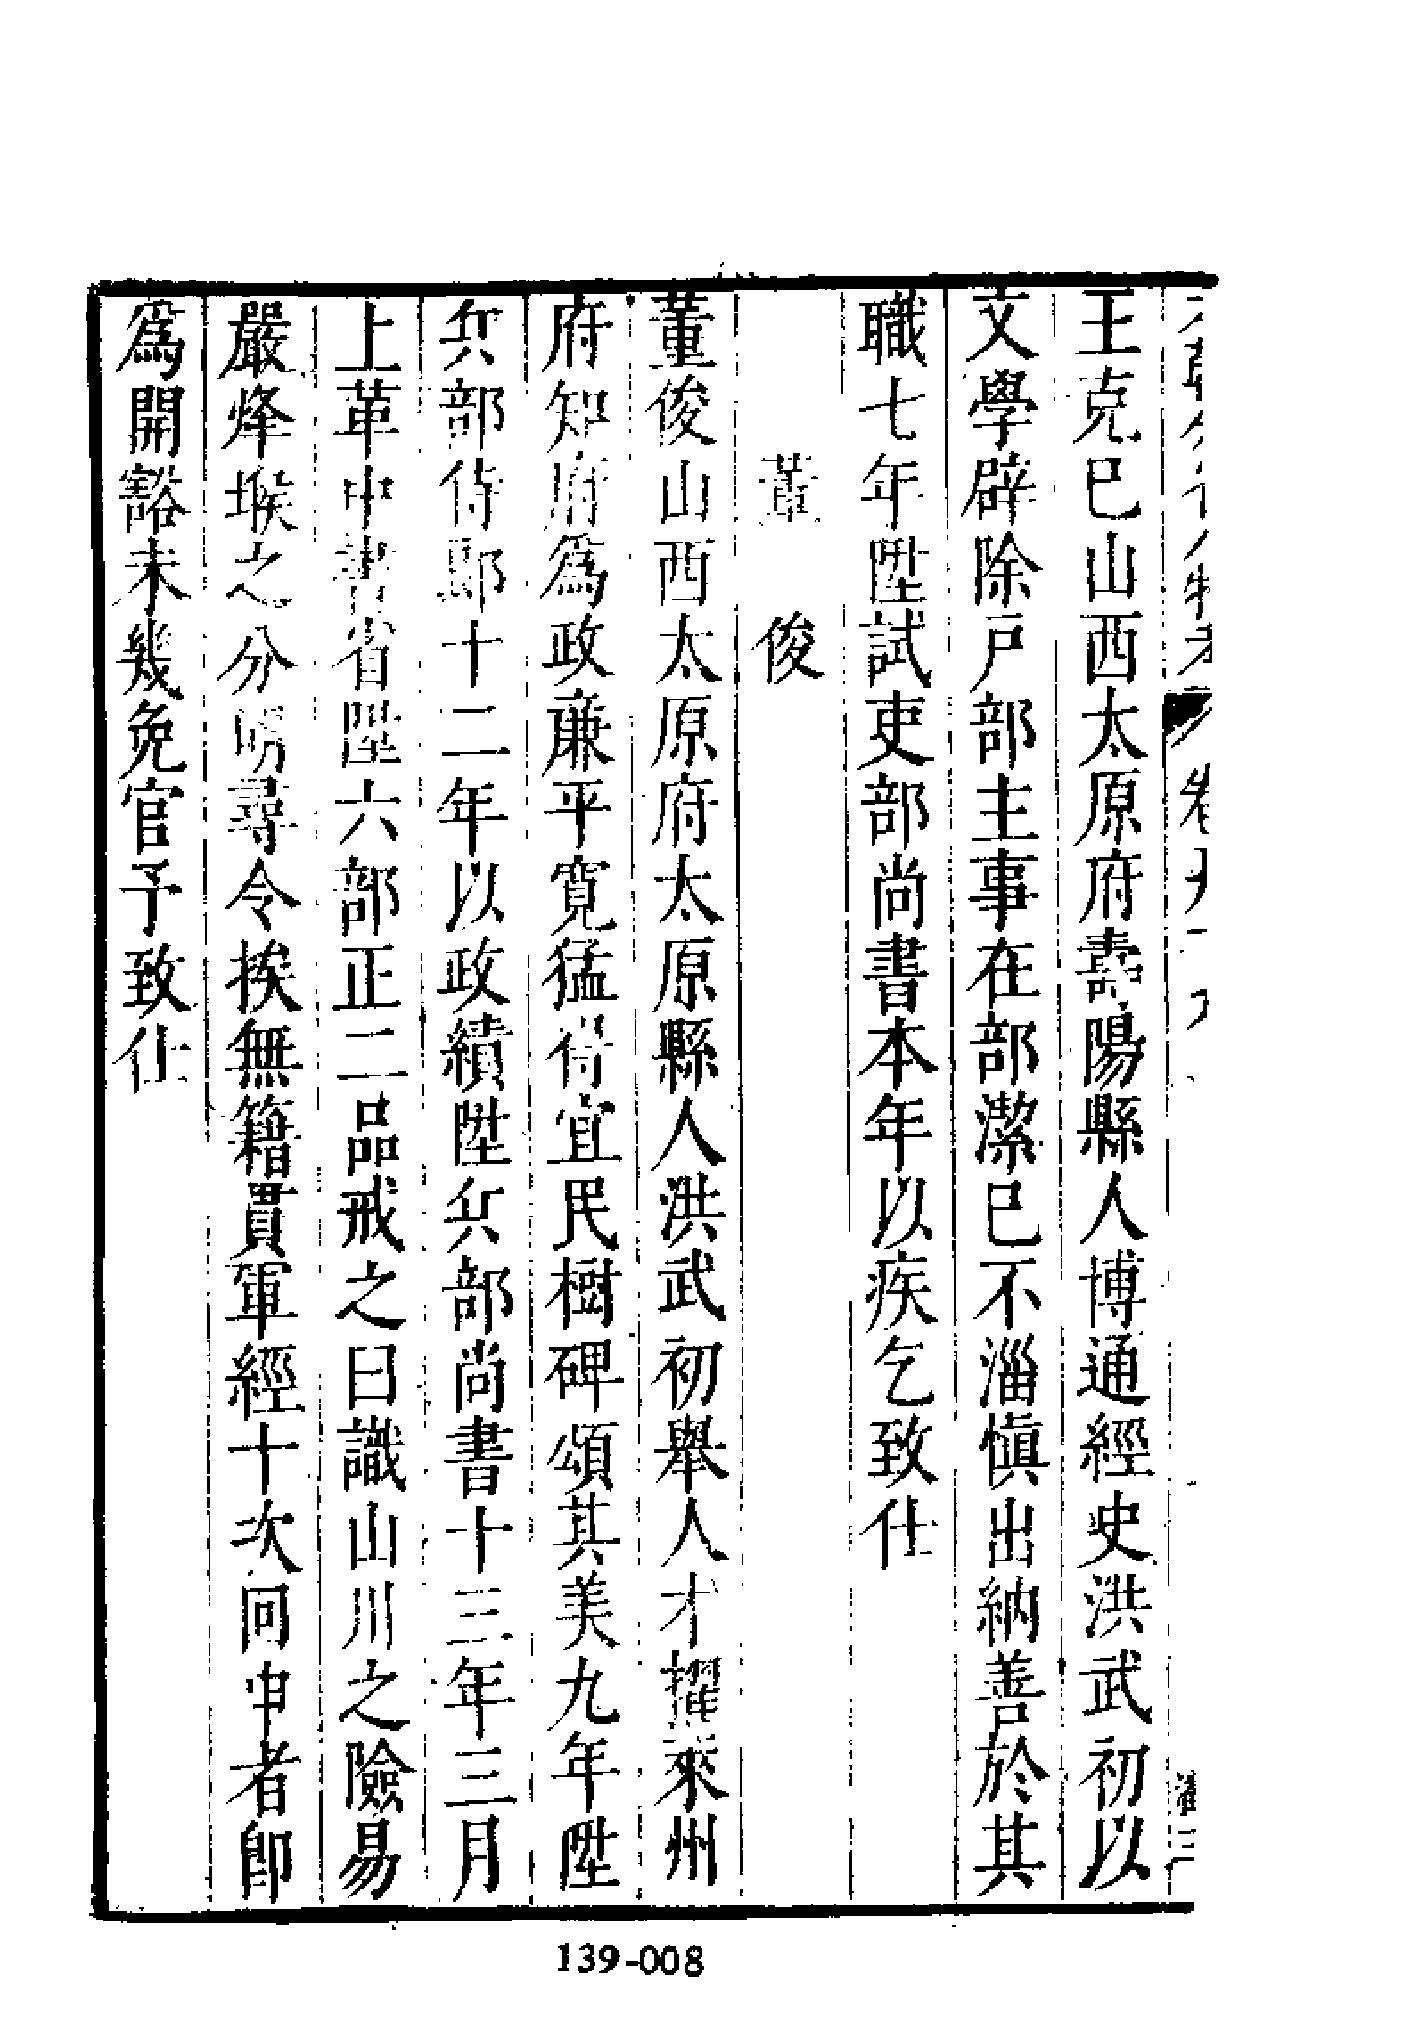 王克巳山西太原府壽陽縣人博通經史洪武初以
文學辟除戸部主事在部潔巳不淄慎出納善於其
職七年陞試吏部尚書本年以疾乞致仕
董俊
董俊山西太原府太原縣人洪武初舉人才擢萊州
府知府爲政亷平寛猛得宜民樹碑頌其美九年陞
兵部侍郎十二年以政績陞兵部尚書十三年三月
上革中書省陞六部正二品戒之曰識山川之險易
嚴烽堠之分明尋令挨無籍貫軍經十次回申者即
爲開豁未幾免官予致仕
139-008